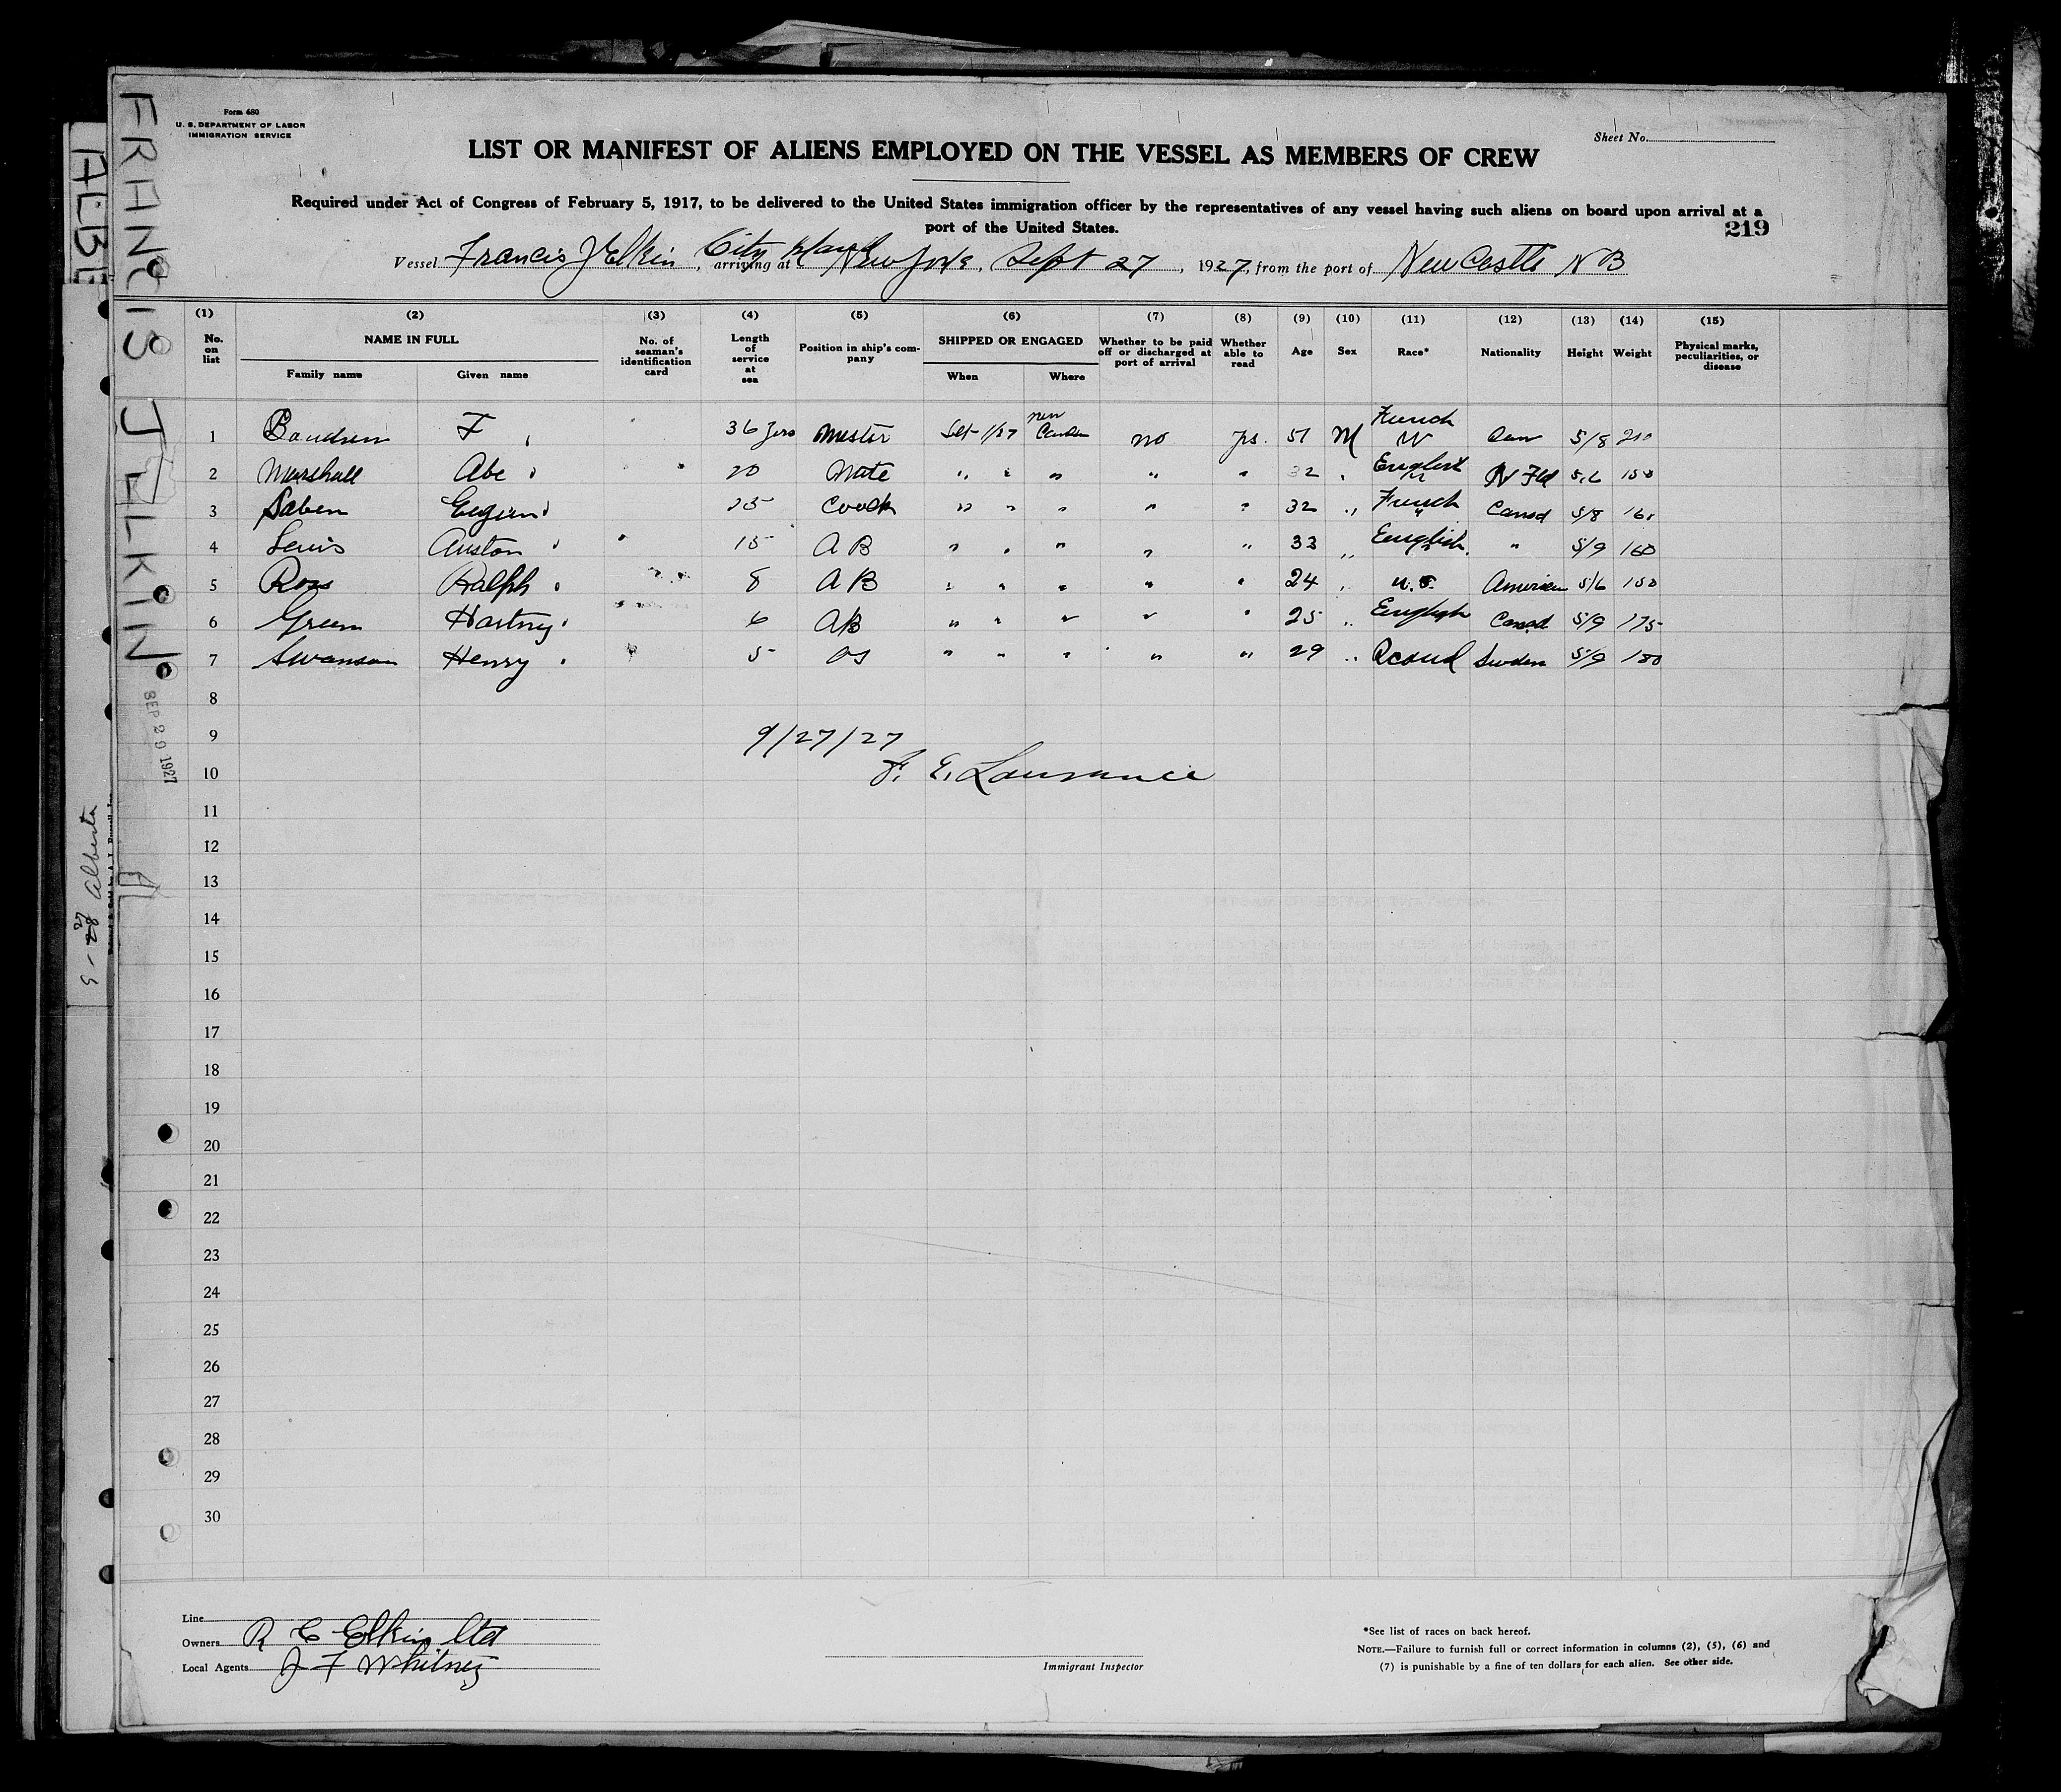 Form 680
U. S. DEPARTMENT OF LABOR
IMMIGRATION SERVICE
Sheet No.
LIST OR MANIFEST OF ALIENS EMPLOYED ON THE VESSEL AS MEMBERS OF CREW
Required under Act of Congress of February 5, 1917, to be delivered to the United States immigration officer by the representatives of any vessel having such aliens on board upon arrival at a
port of the United States.
219
Vessel Francis J Elkin, arriving at City Island New York, Sept 27, 1927, from the port of New Castle N B
(1) (2) (3) (4) (5) (6) (7) (8) (9) (10) (11) (12) (13) (14) (15)
No. on list NAME IN FULL Family name Given name No. of seaman's identification card Length of service at sea Position in ship's company SHIPPED OR ENGAGED When Where Whether to be paid off or discharged at port of arrival Whether able to read Age Sex Race* Nationality Height Weight Physical marks, peculiarities, or disease
1 F 36 yrs Master 1/27 no yes 51 M French 5/8 210
2 Marshall Abe 20 Mate " " " " " 32 English N Fld 5,6 150
3 Saben 25 Coock " " " " " 32 " French Canad 5/8
4 Lewis Auston 15 A B " " " " " 33 " English " 5/9 160
5 Ross Ralph 8 A B " " " " " 24 " U.S. American 5/6 150
6 Green Hartney 6 AB " " " " " 25 " English Canad 5/9 175
7 Swanson Henry 5 OS " " " " " 29 " Scand Sweden 5/9 180
8
9
10
9/27/27
F. E. Lawrance
11
12
13
14
15
16
17
18
19
20
21
22
23
24
25
26
27
28
29
30
Line
Owners R C Elkin Ltd
Local Agents J F Whitney
Immigrant Inspector
*See list of races on back hereof.
NOTE.—Failure to furnish full or correct information in columns (2), (5), (6) and
(7) is punishable by a fine of ten dollars for each alien. See other side.
FRANCIS J ELKIN
SEP 29 1927
ALBE
Alberta